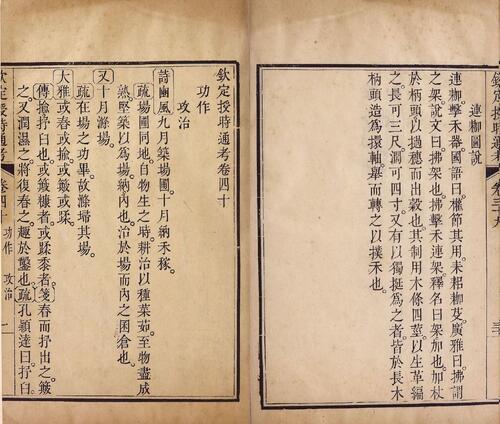 連枷圖說
連枷。擊禾器。國語曰。權節其用。耒耜枷芟。廣雅曰。拂謂
之架。說文曰。拂架也。拂擊禾連架。釋名曰。架加也。加杖
於柄頭。以撾穗而出穀也。其制用木條四莖。以生革編
之。長可三尺。濶可四寸。又有以獨挺為之者。皆於長木
柄頭。造為擐軸。舉而轉之。以撲禾也。
欽定授時通考卷四十
功作
攻治
詩豳風九月築場圃。十月納禾稼。
疏場圃同地。自物生之時。耕治以種菜茹。至物盡成
熟。堅築以為場。納內也。治於場而內之囷倉也。
又十月滌場。
疏在場之功畢。故滌埽其場。
大雅或舂或揄。或簸或蹂。
傳揄抒臼也。或簸糠者。或蹂黍者。箋舂而抒出之。簸
之。又潤濕之。將復舂之。趣於鑿也。疏孔穎達曰。抒臼。
欽定授時通考 卷四十 功作 攻治 一